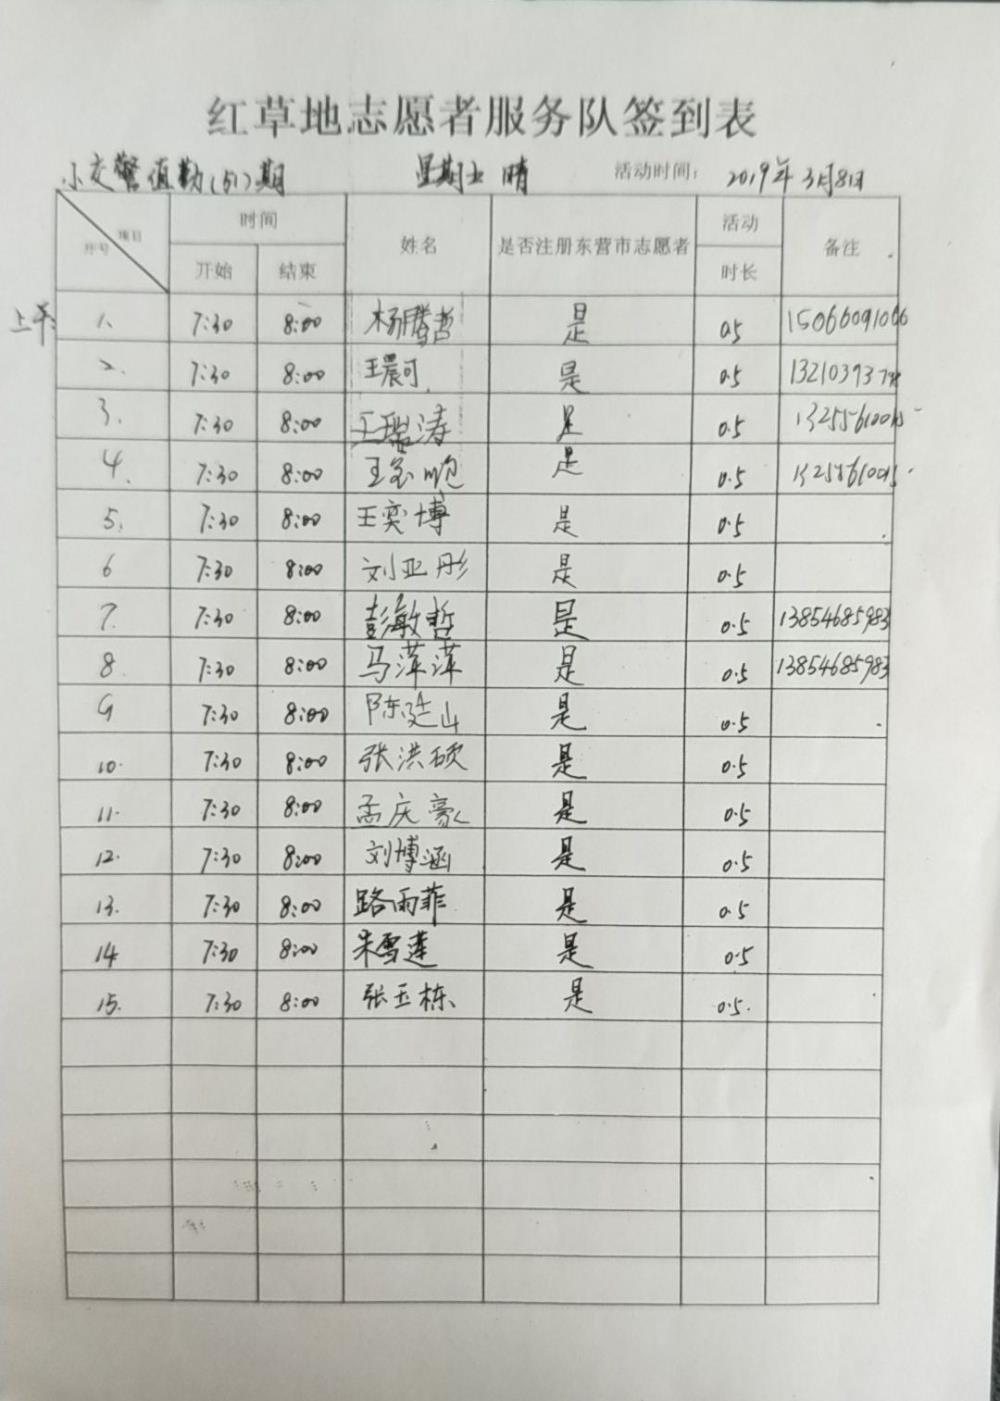 红草地志愿者服务队签到表
小交警值勤(51)期 星期五 晴 活动时间: 2019年3月8日
序号 项目 时间 姓名 是否注册东营市志愿者 活动 备注
开始 结束 时长
上午:
1. 7:30 8:00 杨腾哲 是 0.5 15066091066
2. 7:30 8:00 王晨可 是 0.5
3. 7:30 8:00 王瑞涛 是 0.5
4. 7:30 8:00 是 0.5
5. 7:30 8:00 王奕博 是 0.5
6 7:30 8:00 刘亚彤 是 0.5
7. 7:30 8:00 彭敏哲 是 0.5 13854685983
8. 7:30 8:00 马萍萍 是 0.5 13854685983
9 7:30 8:00 陈延山 是 0.5
10. 7:30 8:00 张洪硕 是 0.5
11. 7:30 8:00 孟庆豪 是 0.5
12. 7:30 8:00 刘博涵 是 0.5
13. 7:30 8:00 路雨菲 是 0.5
14 7:30 8:00 朱雪莲 是 0.5
15. 7:30 8:00 张玉栋 是 0.5.